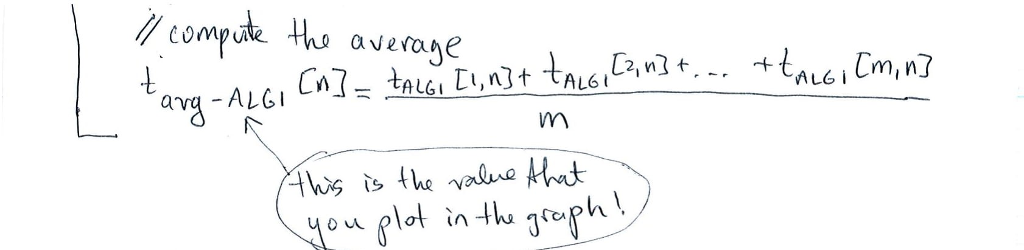 // compute the average
t avg-ALG1 [n] = tALG1 [1,n] + tALG1 [2,n] + ... + tALG1 [m,n]
m
this is the value that
you plot in the graph!